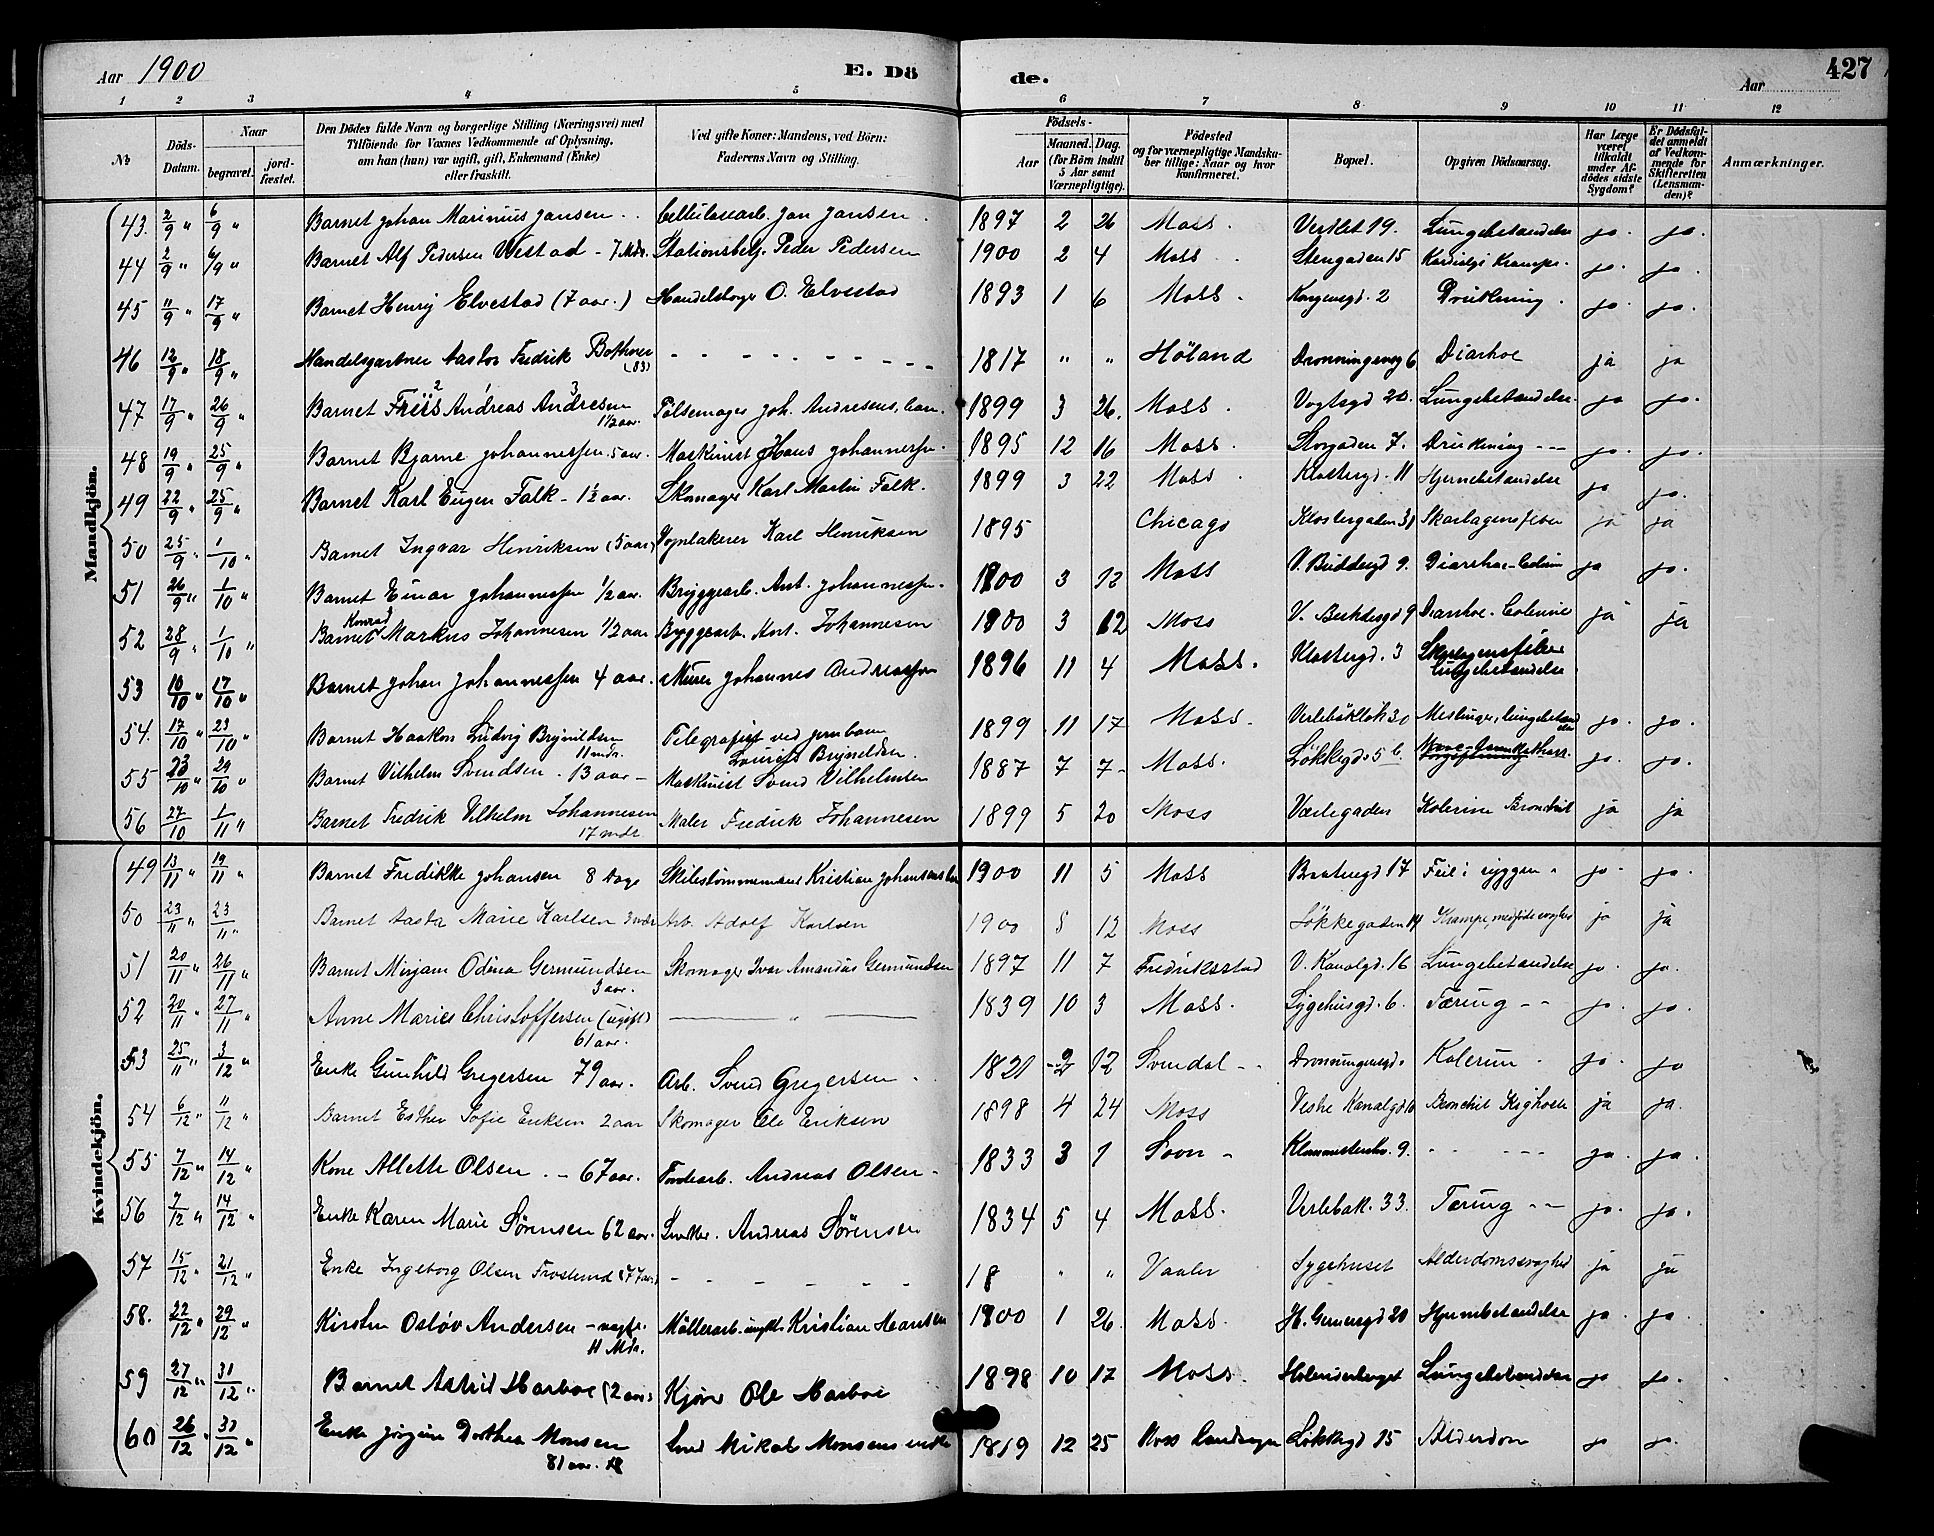 Aar 1900 E. Dö de. Aar 427
1 2 3 4 5 6 7 8 9 10 11 12
№ Döds-Datum. Naar begravet. jordfæstet. Den Dödes fulde Navn og borgerlige Stilling (Næringsvei) med Tilföiende for Voxnes Vedkommende af Oplysning, om han (hun) var ugift, gift, Enkemand (Enke) eller fraskilt. Ved gifte Koner: Mandens, ved Börn: Faderens Navn og Stilling. Födsels- Aar Maaned. Dag. (for Börn indtil 5 Aar samt Værnepligtige). Födested og for værnepligtige Mandskaber tillige: Naar og hvor konfirmeret. Bopæl. Opgiven Dödsaarsag. Har Læge været tilkaldt under Afdödes sidste Sygdom? Er Dödsfaldet anmeldt af Vedkommende for Skifteretten (Lensmanden)? Anmærkninger.
Mandkjön.
43. 2/9 " 6/9 " Barnet Johan Marinius Jansen Cellulosearb. Jan Jansen 1897 2 26 Moss. Verket 19. Lungebetændelse ja. ja.
44 2/9 " 6/9 " Barnet Alf Pedersen Westad - 7 Mdr. Stationsbetj. Peder Pedersen 1900 2 4 Moss Stengaden 15 Krampe. ja. ja.
45 11/9 " 17/9 " Barnet Henry Elvestad (7 aar.) O. Elvestad 1893 1 6 Moss. Kongensgd. 2 Drukning. ja. ja.
46 12/9 " 18/9 " Handelsgartner Fredrik Bothner (83) - - - - 1817 " " Høland Dronningensg 6 Diarhoe ja ja
47 17/9 " 26/9 " Barnet Friis Andreas Andresen 1½ aar. Pølsemager Joh. Andresens barn. 1899 3 26. Moss. Vogtsgd 20. Lungebetændelse. ja ja.
48 19/9 " 25/9 " Barnet Bjarne Johannessen. 5 aar. Maskinist Hans Johannessen. 1895 12 16 Moss. Storgaden 7. Drukning - - - ja. ja.
49 22/9 " 25/9 " Barnet Karl Eugen Falk - 1½ aar. Skomager Karl Martin Falk. 1899 3 22 Moss Klostergd. 11 Hjernebetændelse ja ja.
50 25/9 " 1/10 " Barnet Ingvar Henriksen (5 aar) Vognlakerer Karl Henriksen 1895 Chicago Klostergaden 31 Skarlagensfeber ja ja
51 26/9 " 1/10 " Barnet Einar Johannessen ½ aar. Bryggearb. Ant. Johannessen. 1900 3 12 Moss V. 9. Diarrhoe- ja ja.
52 28/9 " 1/10 " Barnet Konrad Markus Johannesen 1/2 aar Bryggearb. Ant. Johannesen 1900 3 12 Moss V. 9 Diarrhoe. Colerine ja ja
53 10/10 " 17/10 " Barnet Johan Johannessen 4 aar. Murer Johannes Andreassen 1896 11 4 Moss. Klostergd. 3 Skarlagensfeber Lungebetændelse
54. 17/10 " 23/10 " Barnet Haakon Ludvig Brynildsen 11 mdr. Telegrafist ved jernbanen Brynildsen. 1899. 11 17 Moss. 30 Meslinger, lungebetændelse ja. ja.
55 23/10 " 29/10 " Barnet Vilhelm Svendsen. 13 aar - Maskinist Svend Vilhelmsen 1887 7 7- Moss. Løkkegd. 5 b. ja. ja.
56 27/10 1/11 " Barnet Fredrik Vilhelm Johannesen 17 mdr. Maler Fredrik Johannesen 1899 5 20 Moss Værlegaden Kolerine Bronchit ja ja
Kvindekjön.
49 13/11 " 19/11 " Barnet Fredikke Johansen 8 dage Kristian Johansens 1900 11 5 Moss 17 Feil i ryggen " ja. ja.
50 23/11 " 23/11 " Barnet Aasta Marie Karlsen 3 mdr Arb. Adolf Karlsen 1900 8 12 Moss Løkkegaden 14 Krampe, ja ja
51 20/11 " 26/11 " Barnet Mirjam Odina Germundsen 3 aar. Skomager Ivar Amandus Germundsen 1897 11 7 Fredriksstad V. Kanalgd. 16 Lungebetændelse ja. ja.
52 20/11 " 27/11 " Anne Marie Christoffersen (ugift) 61 aar. — " — 1839 10 3 Moss. Sygehusgd. 6. Tæring - - ja. ja.
53 25/11 " 3/12 " Enke Gunhild Gregersen 79 aar. Arb. Svend Gregersen 1821 2 12 Svendal - - Dronningensgd. Kolerine ja. ja
54 6/12 " 11/12 " Barnet Esther Sofie Eriksen 2 aar Skomager Ole Eriksen 1898 4 24 Moss Vestre Kanalgd Bronchit Kighoste ja ja.
55 7/12 " 14/12 " Kone Allette Olsen. - 67 aar. Andreas Olsen - 1833 3 1 Soon - 9. - - - - ja. ja.
56 7/12 " 14/12 " Enke Karen Marie Sørensen 62 aar. Snedker. Andreas Sørensen 1834 5 4 Moss. Verlebak. 33. Tæring - - ja. ja.
57 15/12 " 21/12 " Enke Ingeborg Olsen (77 aar) - - - - 18 " " Vaaler Sygehuset Alderdomssvaghed ja ja
58. 22/12 " 29/12 " Kirsten Osløv Andersen 11 Mdr. Møllerarb. Kristian Hansen 1900 1 26. Moss. H. Gernersgd 20 Hjernebetændelse ja. ja.
59 27/12 " 31/12 " Barnet Astrid Harboe (2 aar) Kjører Ole Harboe 1898 10 17 Moss. Lungebetændelse ja ja.
60 26/12 " 30/12 " Enke Jørgine Dorthea Monsen 81 aar. Mikal Monsens enke 1819 12 25 Moss Landsogn Løkkegd 15 Alderdom ja ja.